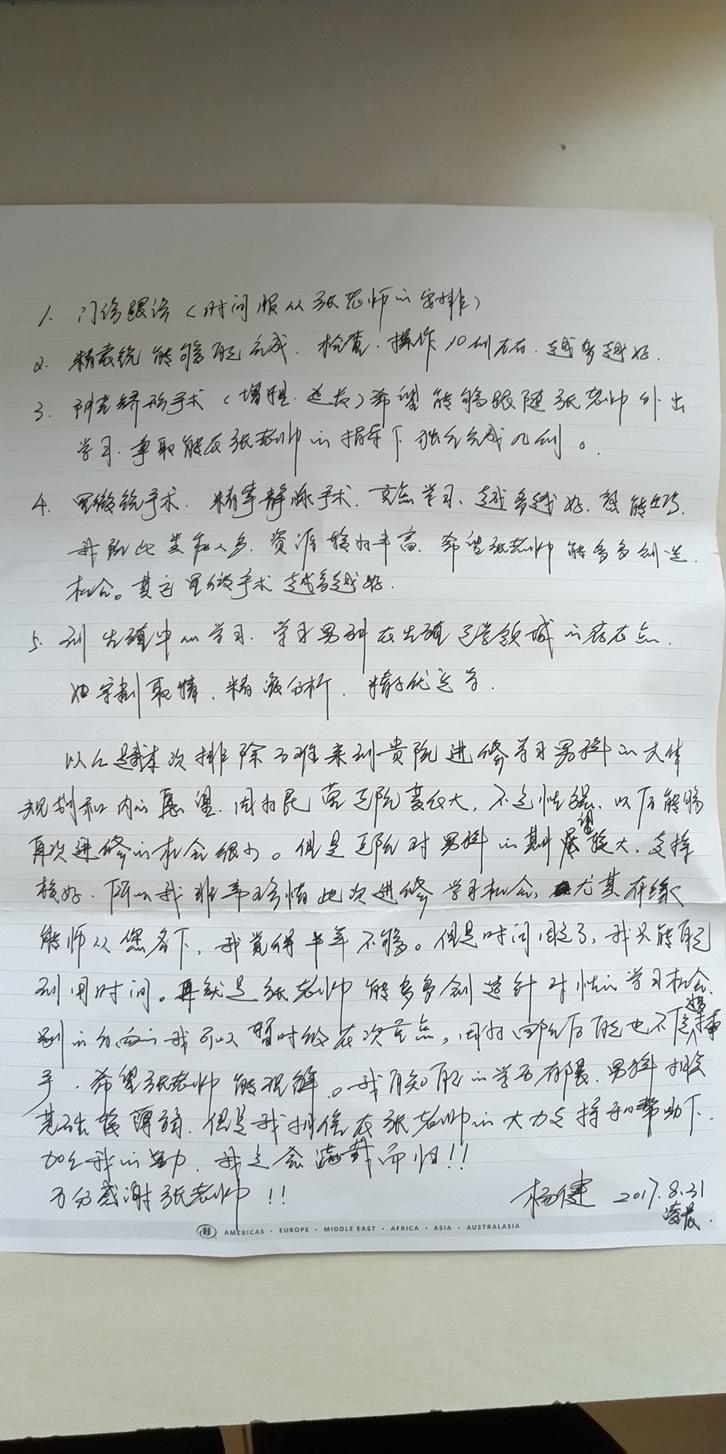 1. 门诊跟诊（时间服从张老师的安排）
2. 精囊镜 能够自己完成. 检查. 操作10例左右. 越多越好.
3. 到 矫形手术（增粗. 延长）希望 能够跟随张老师外出
学习. 争取能在张老师的指导下 独立完成几例。
4. 显微镜手术. 精索静脉手术. 重点学习. 越多越好. 熟能生巧.
我们此类病人多. 资源较为丰富. 希望张老师能多多创造
机会。其它显微手术越多越好.
5. 到生殖中心学习. 学习男科在生殖医学领域的存在点.
如穿刺取精. 精液分析. 精子优选等.
以上是我本次排除万难来到贵院进修学习男科的大体
规划和内心愿望. 因为民营医院变化大, 不定性强. 以后能够
再次进修的机会很少。但是医院对男科的期望较大, 支持
较好. 所以我非常珍惜此次进修学习机会, 尤其有缘
能师从您名下, 我觉得半年不够。但是时间固定了, 我只能自己
利用时间。再就是张老师能多多创造针对性的学习机会.
别的方面我可以暂时放在次重点, 因为回去后自己也不一定
手. 希望张老师能理解。我自知自己的学历有限. 男科
基础薄弱. 但是我相信在张老师的大力支持和帮助下.
加上我的努力, 我定会满载而归!!
万分感谢张老师!!
杨健 2017.8.31
凌晨.
AMERICAS · EUROPE · MIDDLE EAST · AFRICA · ASIA · AUSTRALASIA